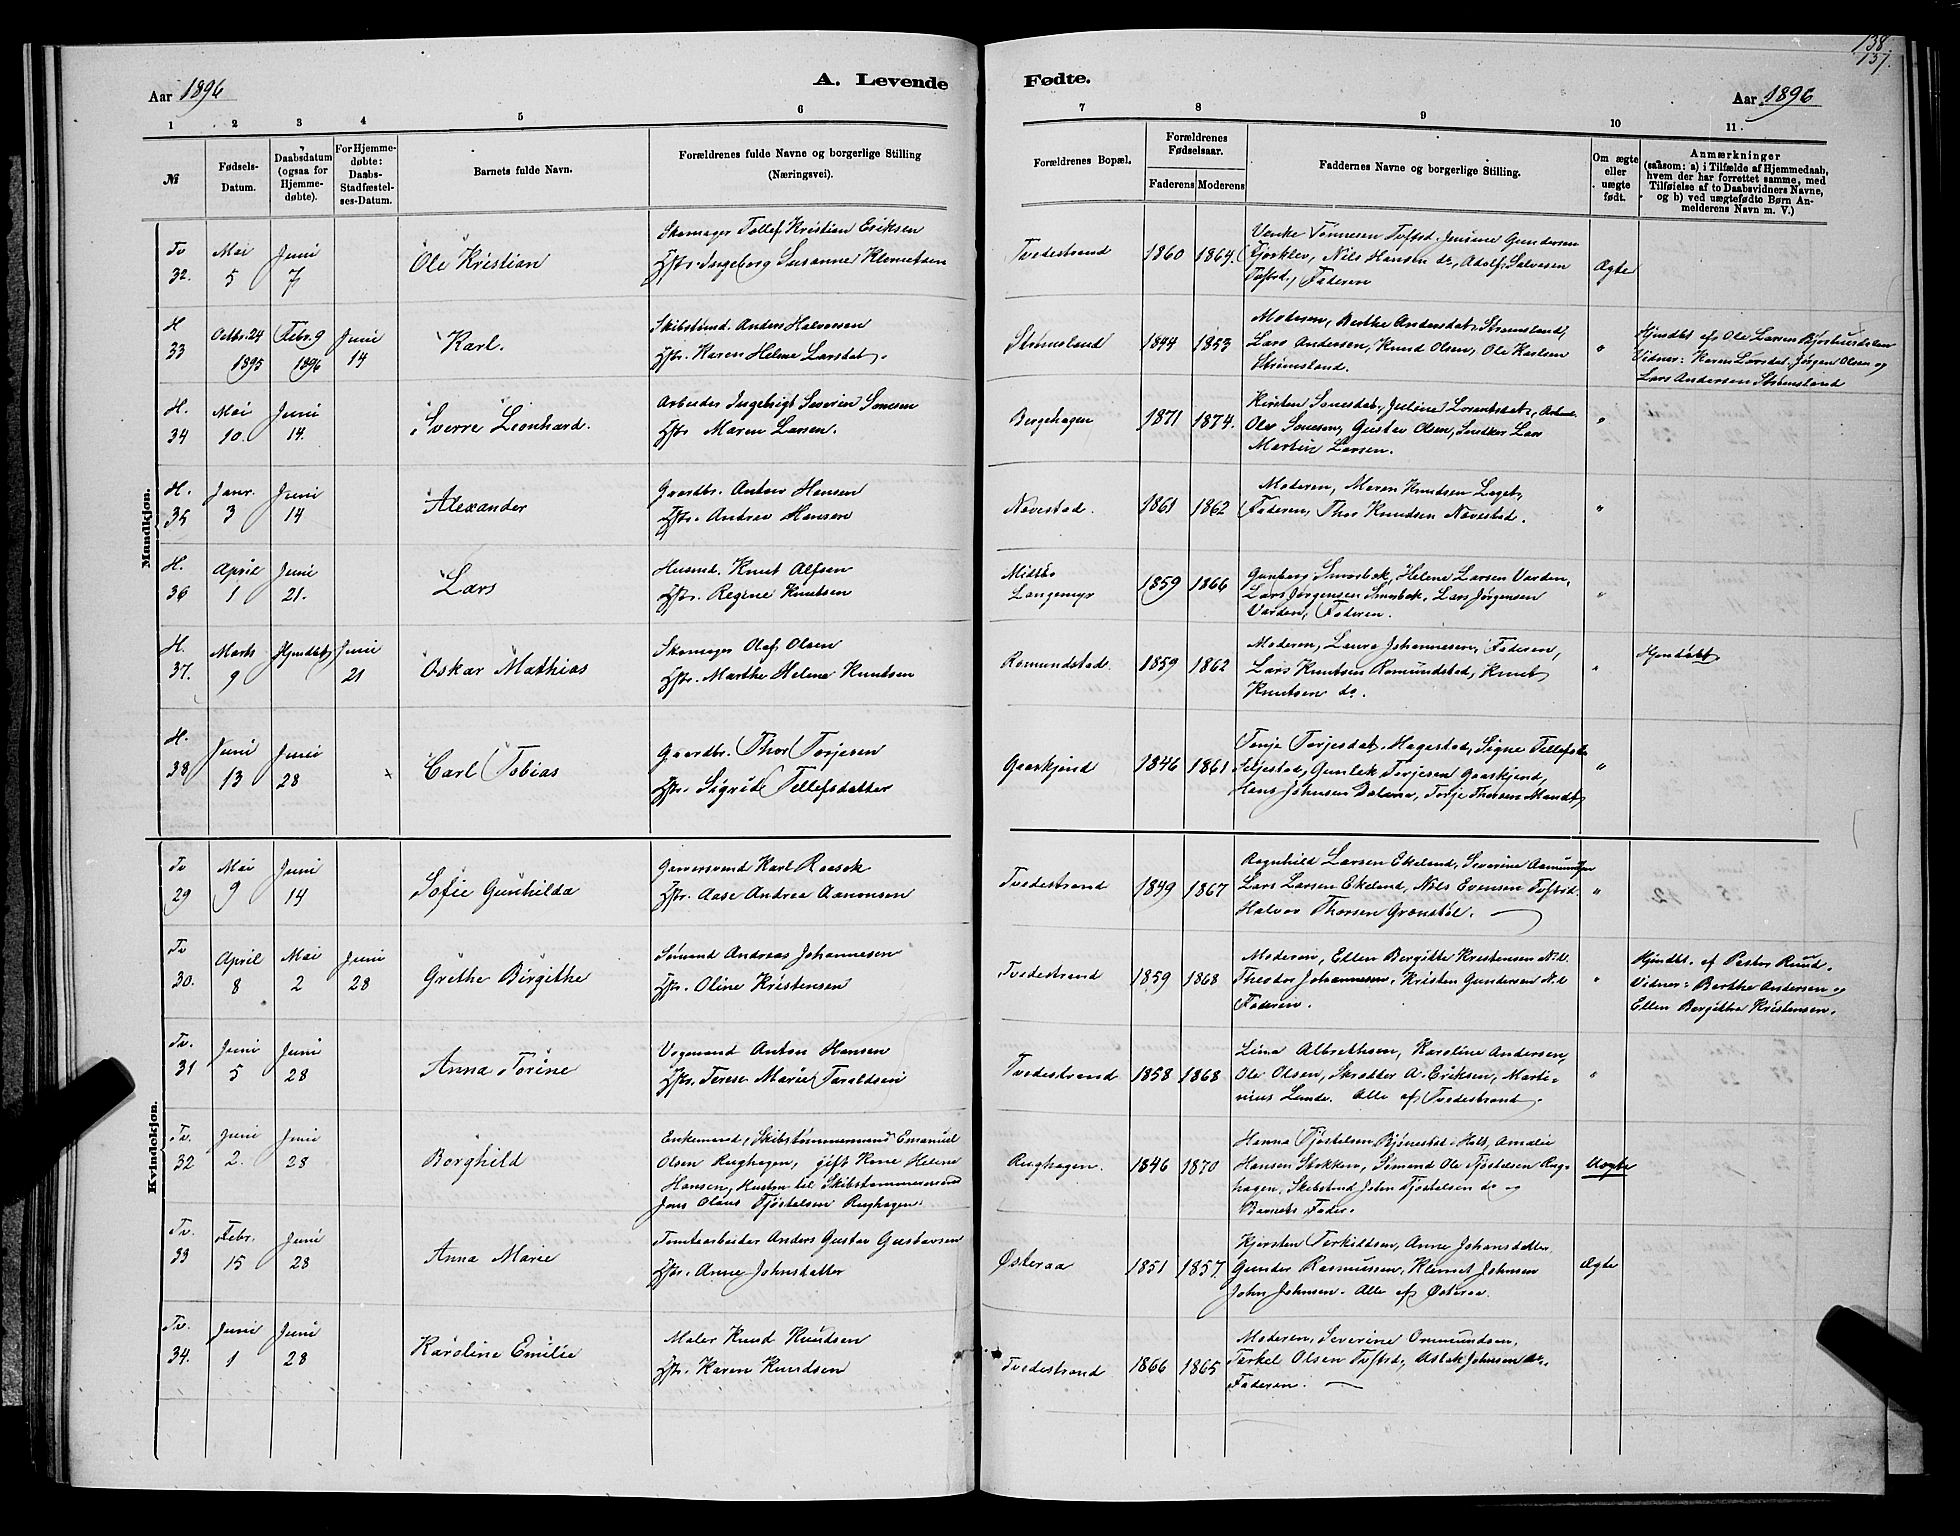 138
137.
Aar 1896
A. Levende
Fødte.
Aar 1896
1 2 3 4 5 6
7 8 9 10 11.
№
Fødsels-
Datum.
Daabsdatum
(ogsaa for
Hjemme-
døbte).
For Hjemme-
døbte:
Daabs-
Stadfæstel-
ses-Datum.
Barnets fulde Navn.
Forældrenes fulde Navne og borgerlige Stilling
(Næringsvei).
Forældrenes Bopæl.
Forældrenes
Fødselsaar.
Faderens Moderens
Faddernes Navne og borgerlige Stilling.
Om ægte
eller
uægte
født.
Anmærkninger
(saasom: a) i Tilfælde af Hjemmedaab,
hvem der har forrettet samme, med
Tilføielse af to Daabsvidners Navne,
og b) ved uægtefødte Børn An-
melderens Navn m. V.)
Mandkjøn.
Tv 32. Mai 5 Juni 7
Ole Kristian
Skomager Tollef Kristian Eriksen
Hst. Ingeborg Susanne Klemetsen
Tvedestrand 1860 1864.
Venke Tønnesen Tvftsd. Jensine Gundersen
Fjorklev, Nils Hansen do, Adolf Salvesen
Tvftsd., Faderen
Ægte
H 33 Octbr. 24 1895 Febr. 9 1896 Juni 14
Karl.
Skibstømd. Anders Halvorsen
Hst. Karen Helene Larsdat.
Strømsland 1844 1853
Moderen, Berthe Andersdat. Strømsland,
Lars Andersen, Knud Olsen, Ole Karlsen
Strømsland.
"
Hjmdbt af Ole Larsen
Vidner: Karen Larsdat. Jørgen Olsen og
Lars Andersen Strømsland
H. 34 Mai 10. Juni 14.
Sverre Leonhard.
Arbeider Ingebrigt Severin Sønesen
Hst. Maren Larsen.
Bergehagen 1871 1874.
Kirsten Sønesdat., Juline Lorentsdat.,
Olav Sønesen, Gustav Olsen, Snedker Lars
Martin Larsen.
"
H. 35 Janr. 3 Juni 14
Alexander
Gaardbr. Anton Hansen
Hst. Andrea Hansen
Navestad. 1861 1862
Moderen, Maren Knudsen
Faderen, Thor Knudsen Navestad.
"
H. 36 April 1 Juni 21.
Lars
Husmd. Knut Alfsen
Hst. Regine Knutsen
Midtbø
Langemyr 1859 1866
Gunborg Smorbek, Helene Larsen Varden,
Lars Jørgensen Smorbek, Lars Jørgensen
Varden, Faderen.
"
H. 37. Marts 9 Hjmdbt. Juni 21
Oskar Mathias
Skomager Olaf Olsen
Hst. Marthe Helene Knutsen
Romundstad. 1859 1862
Moderen, Laura Johannesen, Faderen,
Lars Knutsen Romundstad, Knut
Knutsen do.
"
Hjmdøbt
H. 38 Juni 13 Juni 28
× Carl Tobias
Gaardbr. Thor Torjesen
Hst. Sigrid Tellefsdatter
Gaaskjend 1846 1861
Tonje Torjesdat. Hagestad, Signe Tellefsd.
Seljestad, Gunlek Torjesen Gaaskjend,
Hans Johnsen Dalene, Torje Thorsen
"
Kvindekjøn.
Tv 29 Mai 9 Juni 14
Sofie Gunhilda
Garversvend Karl Raasok
Hst. Aase Andrea Aanonsen
Tvedestrand 1849 1867
Ragnhild Larsen Ekeland, Severine Aamundsen
Lars Larsen Ekeland, Nils Evensen Tvftsd.
Halvor Thorsen Grønstøl.
"
Tv 30. April 8 Mai 2 Juni 28
Grethe Birgithe
Sømand Andreas Johannesen
Hst. Oline Kristensen
Tvedestrand 1859 1868
Moderen, Ellen Bergitte Kristensen
Theodor Johannesen, Kristen Gundersen
Faderen.
"
Hjmdbt. af Pastor Ruud.
Vidner: Berthe Andersen og
Ellen Bergitha Kristensen.
Tv. 31 Juni 5 Juni 28
Anna Torine
Vognmand Anton Hansen
Hst. Terese Marie Taraldsen
Tvedestrand 1858 1868
Lina Albrethsen, Karoline Andersen,
Ole Olsen, Skrædder A. Eriksen, Marti-
nius Lunde. Alle af Tvedestrand.
"
Tv. 32 Juni 2. Juni 28
Borghild
Enkemand, Skibstømmermand Emanuel
Olsen Rughagen, gift Kone Helene
Hansen, Hustru til Skibstømmermand
Jens Olaus Tjøstelsen Rughagen.
Rughagen. 1846 1870
Hanna Tjøstelsen Bjønestad Holt, Amalie
Hansen Stokken, Sømand Ole Tjøstelsen Rug-
hagen, Skibstmd John Tjøstelsen do og
Barnets Fader.
Uægte
Tv. 33 Febr. 15 Juni 28
Anna Marie
Tomtearbeider Anders Gustav Gustavsen
Hst. Anne Johnsdatter
Østeraa 1851 1857
Kjersten Terkildsen, Anne Johansdatter,
Gunder Rasmussen, Klemet Johnsen
John Johnsen. Alle af Østeraa.
Ægte
Tv. 34. Juni 1 Juni 28
Karoline Emilie
Maler Knud Knudsen
Hst. Karen Knudsen
Tvedestrand 1866 1865
Moderen, Severine Ommundsen,
Terkel Olsen Tvftsd., Aslak Johnsen do.,
Faderen.